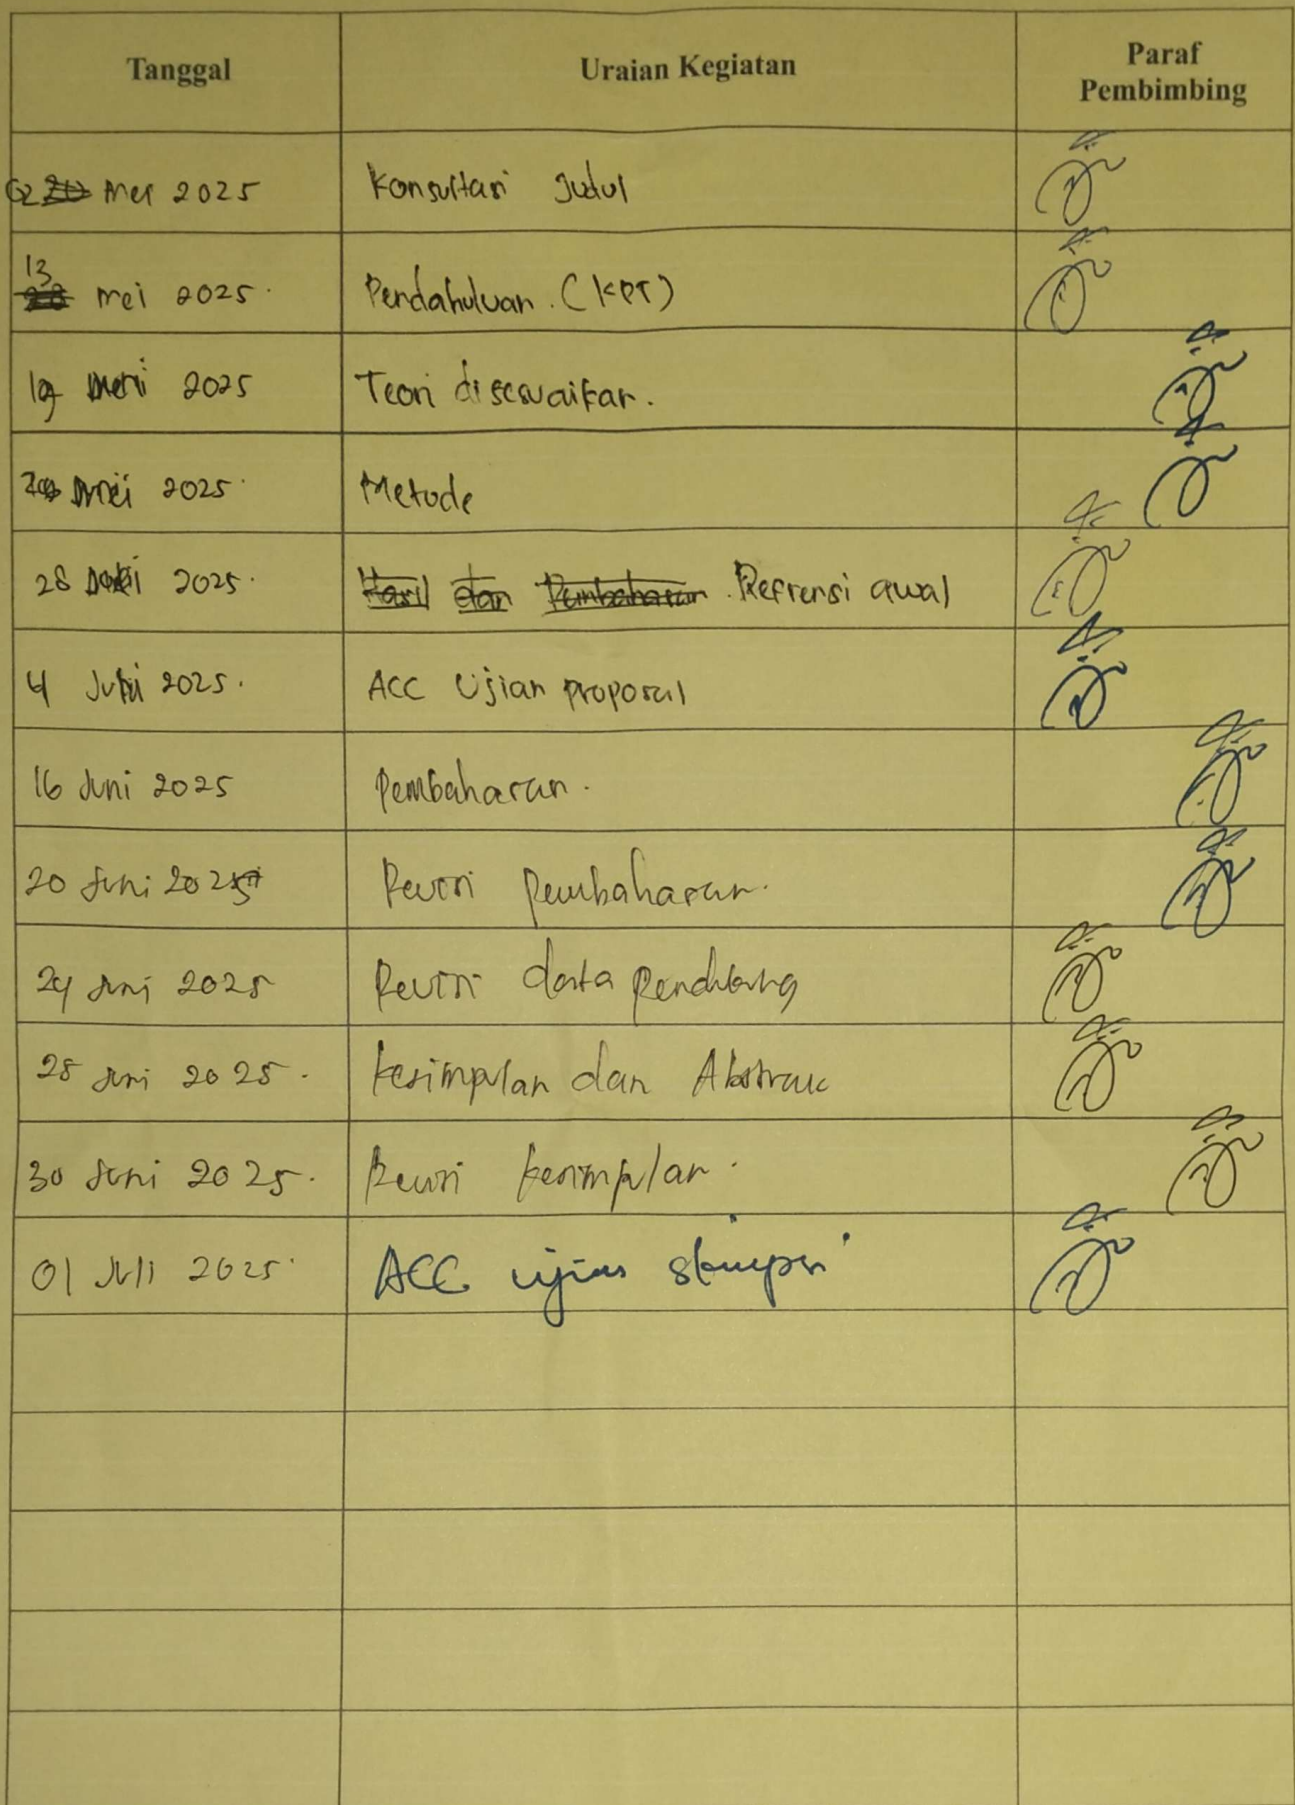 Tanggal Uraian Kegiatan Paraf
Pembimbing
02 Mei 2025 Konsultasi Judul
13 Mei 2025. Pendahuluan. (KPT)
19 Mei 2025 Teori disesuaikan.
Mei 2025. Metode
28 Mei 2025. Hasil dan Pembahasan. Refrensi awal
4 Juni 2025. ACC Ujian proposal
16 Juni 2025 Pembahasan.
20 Juni 2025 Revisi Pembahasan.
24 Juni 2025 Revisi data Pendukung
28 Juni 2025. Kesimpulan dan Abstrak
30 Juni 2025. Revisi Kesimpulan.
01 Juli 2025. ACC ujian skripsi